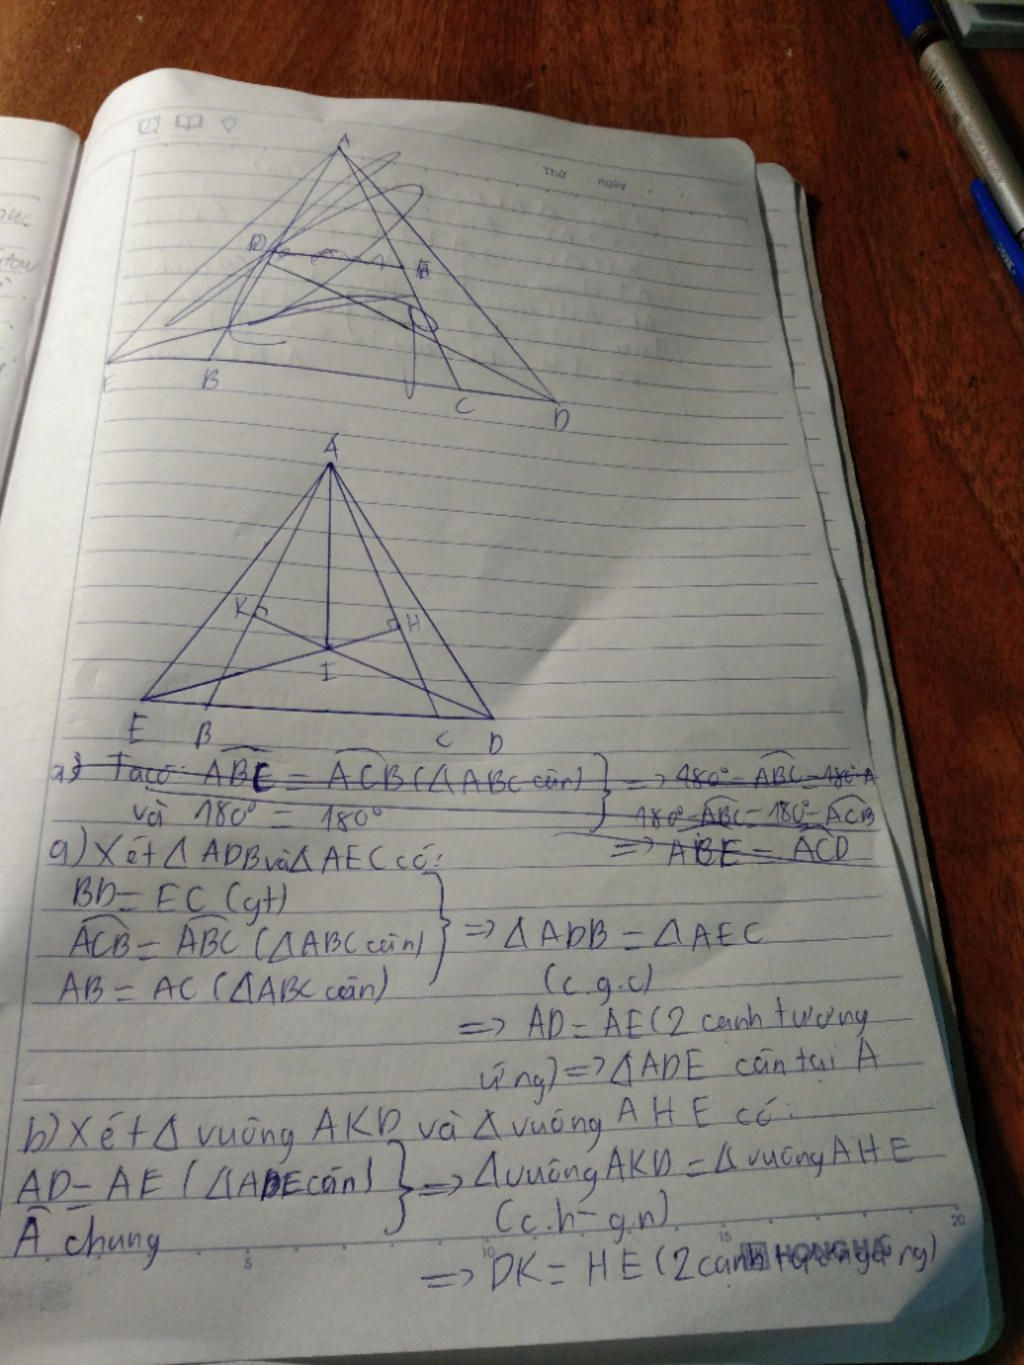 Thứ ngày
A
D
E
E
B
C
D
A
K
H
I
E
B
C
D
a) Ta có: ABC = ACB (ΔABC cân) } => 180° - ABC = 180° A
và 180° = 180° 180° - ABC = 180° - ACB
=> ABE = ACD
a) Xét Δ ADB và Δ AEC có:
BD = EC (gt)
ACB = ABC (ΔABC cân) } => Δ ADB = Δ AEC
AB = AC (ΔABC cân) (c.g.c)
=> AD = AE (2 cạnh tương
ứng) => ΔADE cân tại A
b) Xét Δ vuông AKD và Δ vuông AHE có:
AD = AE (ΔADE cân) } => Δ vuông AKD = Δ vuông AHE
 chung (c.h - g.n)
=> DK = HE (2 cạnh tương ứng)
5 10 15 20
HONG HA